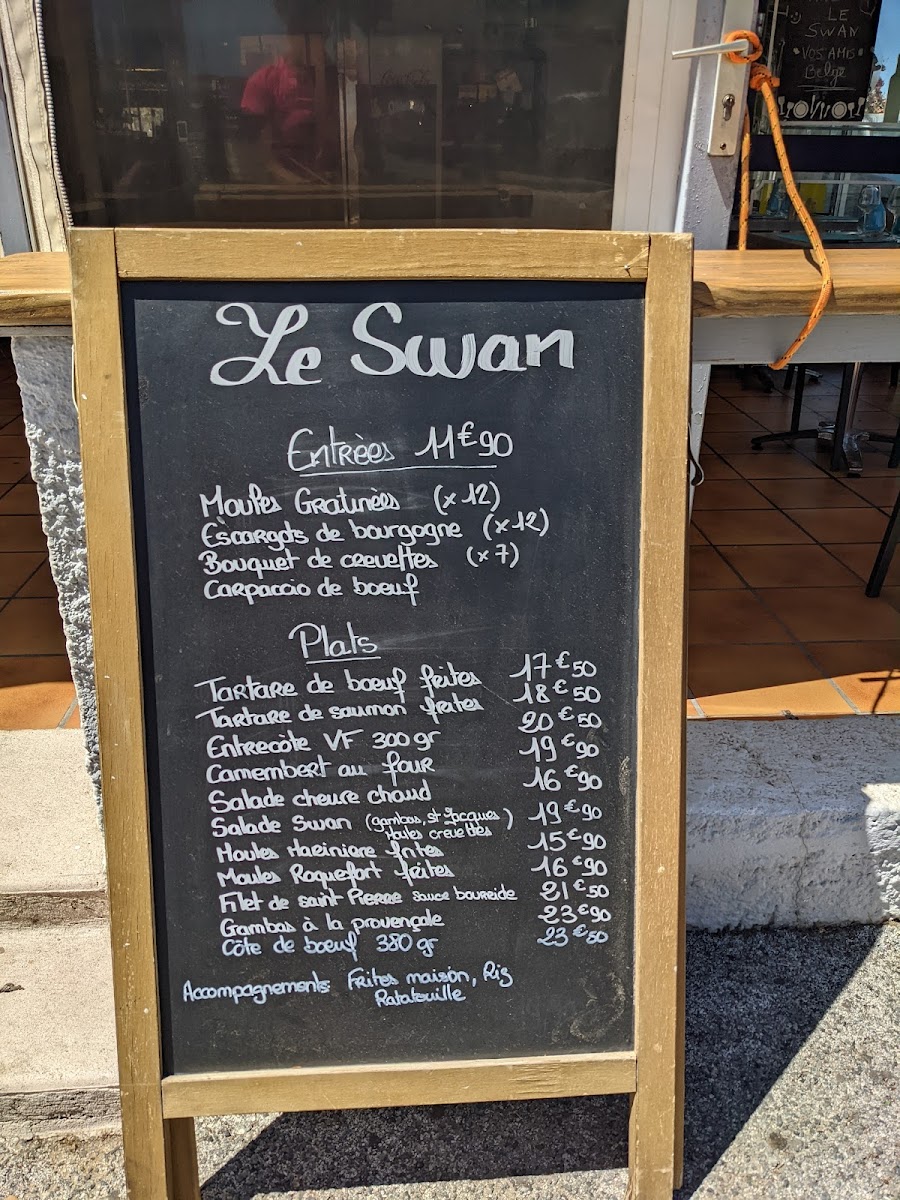 LE
SWAN
"VOS AMIS
Belge
Le Swan
Entrèes 11€90
Moules Gratinèes (x12)
Escargots de bourgogne (x12)
Bouquet de crevettes (x7)
Carpaccio de boeuf
Plats
Tartare de boeuf frites 17€50
Tartare de saumon frites 18€50
Entrecôte VF 300 gr 20€50
Camembert au four 19€90
Salade chevre chaud 16€90
Salade Swan (gambas, st Jacques, Moules crevettes) 19€90
Moules Mariniere frites 15€90
Moules Roquefort frites 16€90
Filet de saint Pierre sauce boureide 21€50
Gambas à la provençale 23€90
Côte de boeuf 380 gr 23€50
Accompagnements: Frites maison, Riz
Ratatouille